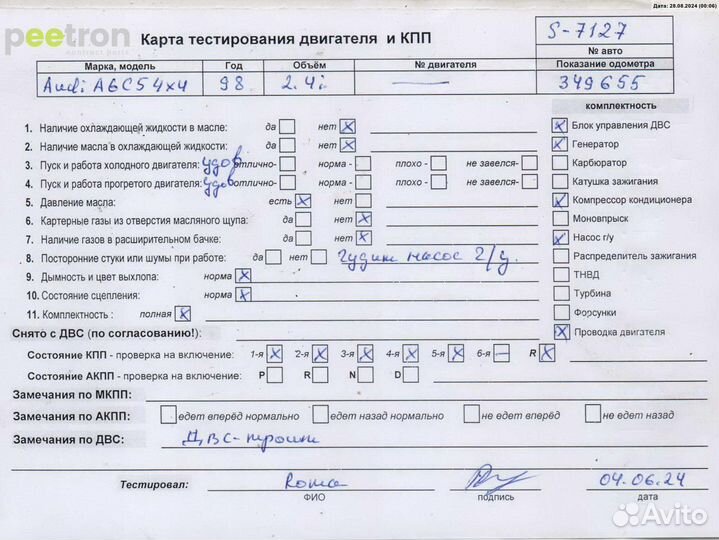 Дата: 28.08.2024 (00:06)
peetron
contract parts
Карта тестирования двигателя и КПП
S-7127
№ авто
Марка, модель Год Объём № двигателя Показание одометра
Audi A6C5 4x4 98 2.4i — 349655
комплектность
1. Наличие охлаждающей жидкости в масле: да нет X
2. Наличие масла в охлаждающей жидкости: да нет X
3. Пуск и работа холодного двигателя: удов отлично- норма - плохо - не завелся-
4. Пуск и работа прогретого двигателя: удов отлично- норма - плохо - не завелся-
5. Давление масла: есть X нет
6. Картерные газы из отверстия масляного щупа: да нет X
7. Наличие газов в расширительном бачке: да нет X
8. Посторонние стуки или шумы при работе: да нет Гудит насос г/у.
9. Дымность и цвет выхлопа: норма X
10. Состояние сцепления: норма X
11. Комплектность : полная X
X Блок управления ДВС
X Генератор
Карбюратор
Катушка зажигания
X Компрессор кондиционера
Моновпрыск
X Насос г/у
Распределитель зажигания
ТНВД
Турбина
Форсунки
X Проводка двигателя
Снято с ДВС (по согласованию!):
Состояние КПП - проверка на включение: 1-я X 2-я X 3-я X 4-я X 5-я X 6-я — R X
Состояние АКПП - проверка на включение: P R N D
Замечания по МКПП:
Замечания по АКПП: едет вперёд нормально едет назад нормально не едет вперёд не едет назад
Замечания по ДВС: ДВС-троит
Тестировал: Roma 04.06.24
ФИО подпись дата
Avito